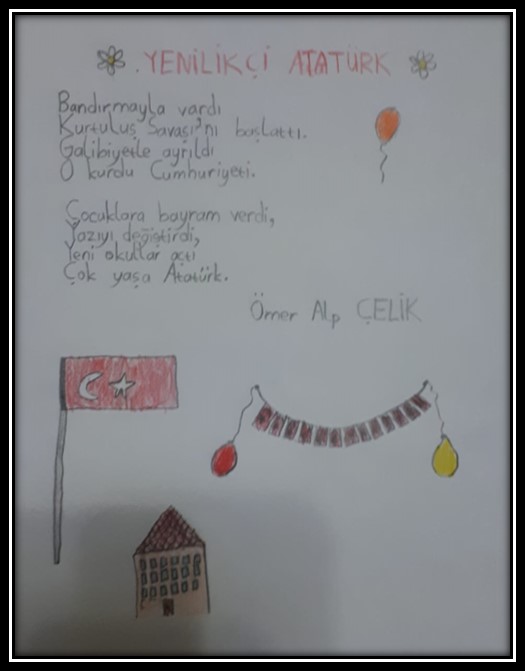 .YENİLİKÇİ ATATÜRK
Bandırmayla vardı
Kurtuluş Savaşı'nı başlattı.
Galibiyetle ayrıldı
O kurdu Cumhuriyeti.
Çocuklara bayram verdi,
Yazıyı değiştirdi,
Yeni okullar açtı
Çok yaşa Atatürk.
Ömer Alp ÇELİK